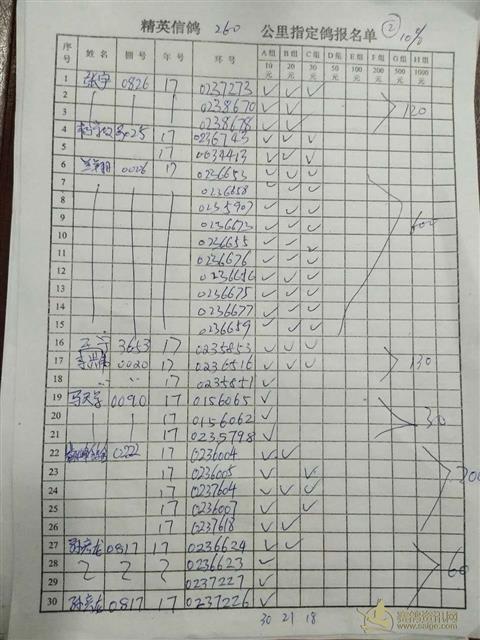 精英信鸽 260 公里指定鸽报名单 ② 10%
序号 姓名 棚号 年号 环号 A组10元 B组20元 C组30元 D组50元 E组100元 F组200元 G组500元 H组1000元
1 张宇 0826 17 0237273 ✓ ✓ ✓
2 0238670 ✓ ✓ 120
3 0238678 ✓ ✓
4 17 0236743 ✓ ✓ ✓
5 17 0034413 ✓ ✓ ✓
6 0026 17 0236653 ✓ ✓ ✓
7 0236658 ✓ ✓ ✓
8 0235907 ✓ ✓ ✓
9 0236673 ✓ ✓ ✓ 600
10 0236655 ✓ ✓ ✓
11 0236676 ✓ ✓ ✓
12 0236656 ✓ ✓ ✓
13 0236675 ✓ ✓ ✓
14 0236677 ✓ ✓ ✓
15 0236659 ✓ ✓ ✓
16 3653 17 0235853 ✓ ✓ ✓
17 0020 17 0236516 ✓ ✓ ✓ 130
18 〃 〃 17 0235851 ✓
19 马天宇 0090 17 0156065 ✓
20 0156062 ✓ 30
21 17 0235798 ✓
22 0222 0236004 ✓ ✓
23 17 0236005 ✓ ✓
24 17 0237604 ✓ ✓ ✓ 200
25 17 0236007 ✓ ✓
26 17 0237618 ✓ ✓
27 孙彦龙 0817 17 0236624 ✓ ✓
28 0236623 ✓ 60
29 0237227 ✓
30 孙彦龙 0817 17 0237226 ✓
30 21 18
赛鸽资讯网
www.saige.com